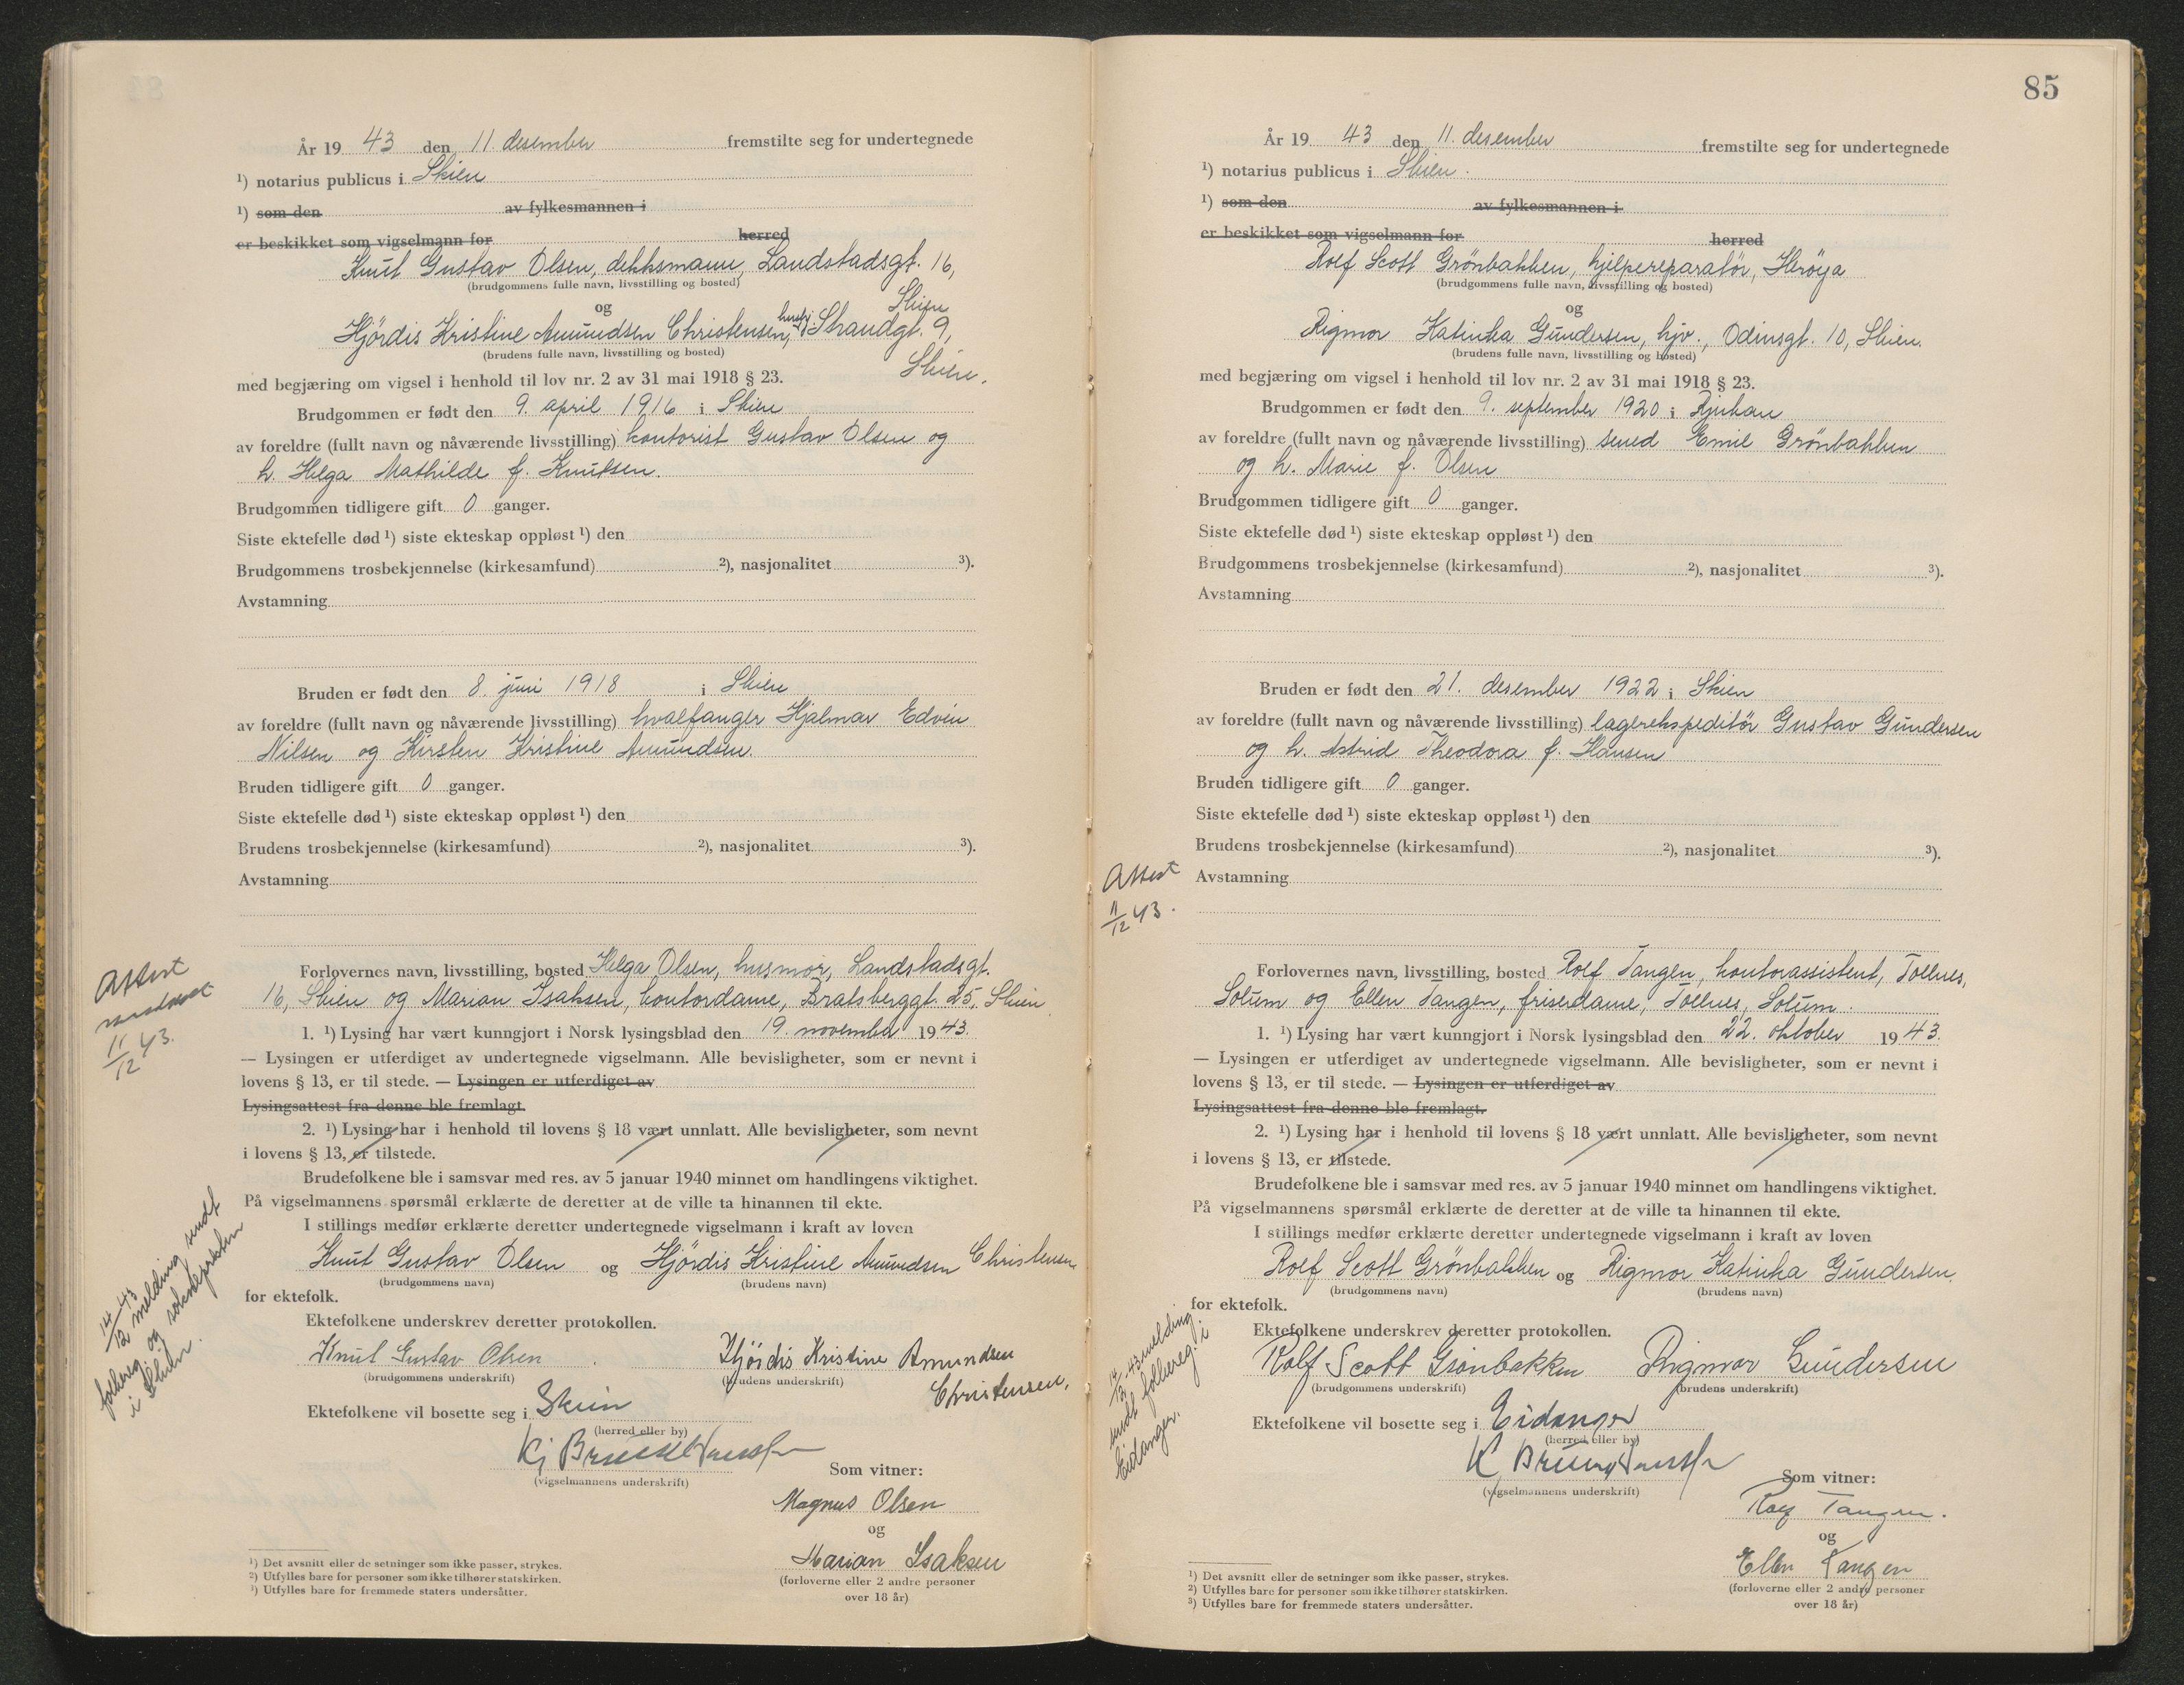 År 19 43 den 11 desember fremstilte seg for undertegnede
¹) notarius publicus i Skien
¹) som den av fylkesmannen i
er beskikket som vigselmann for herred
Knut Gustav Olsen, dekksmann, Landstadsgt. 16,
(brudgommens fulle navn, livsstilling og bosted)
Skien
og
Hjördis Kristine Amundsen Christensen, Strandgt. 9,
(brudens fulle navn, livsstilling og bosted)
Skien.
med begjæring om vigsel i henhold til lov nr. 2 av 31 mai 1918 § 23.
Brudgommen er født den 9. april 1916 i Skien
av foreldre (fullt navn og nåværende livsstilling) kontorist Gustav Olsen og
h. Helga Mathilde f. Knutsen.
Brudgommen tidligere gift 0 ganger.
Siste ektefelle død ¹) siste ekteskap oppløst ¹) den
Brudgommens trosbekjennelse (kirkesamfund) ²), nasjonalitet ³).
Avstamning
Bruden er født den 8. juni 1918 i Skien
av foreldre (fullt navn og nåværende livsstilling) hvalfanger Hjalmar Edvin
Nilsen og Kirsten Kristine Amundsen.
Bruden tidligere gift 0 ganger.
Siste ektefelle død ¹) siste ekteskap oppløst ¹) den
Brudens trosbekjennelse (kirkesamfund) ²), nasjonalitet ³).
Avstamning
Forlovernes navn, livsstilling, bosted Helga Olsen, husmor, Landstadsgt.
16, Skien og Marian Isaksen, kontordame, Bratsberggt. 25, Skien
Attest
11/12 43.
1. ¹) Lysing har vært kunngjort i Norsk lysingsblad den 19. november 1943.
— Lysingen er utferdiget av undertegnede vigselmann. Alle bevisligheter, som er nevnt i
lovens § 13, er til stede. — Lysingen er utferdiget av
Lysingsattest fra denne ble fremlagt.
2. ¹) Lysing har i henhold til lovens § 18 vært unnlatt. Alle bevisligheter, som nevnt
i lovens § 13, er tilstede.
Brudefolkene ble i samsvar med res. av 5 januar 1940 minnet om handlingens viktighet.
På vigselmannens spørsmål erklærte de deretter at de ville ta hinannen til ekte.
I stillings medfør erklærte deretter undertegnede vigselmann i kraft av loven
Knut Gustav Olsen og Hjördis Kristine Amundsen Christensen
(brudgommens navn) (brudens navn)
for ektefolk.
14/12 43 melding sendt
folkereg. og soknepresten
i Skien.
Ektefolkene underskrev deretter protokollen.
Knut Gustav Olsen Hjördis Kristine Amundsen
(brudgommens underskrift) (brudens underskrift)
Christensen,
Ektefolkene vil bosette seg i Skien
(herred eller by)
(vigselmannens underskrift)
Som vitner:
Magnus Olsen
og
Marian Isaksen
(forloverne eller 2 andre personer
over 18 år)
¹) Det avsnitt eller de setninger som ikke passer, strykes.
²) Utfylles bare for personer som ikke tilhører statskirken.
³) Utfylles bare for fremmede staters undersåtter.
85
År 19 43 den 11. desember fremstilte seg for undertegnede
¹) notarius publicus i Skien.
¹) som den av fylkesmannen i
er beskikket som vigselmann for herred
Rolf Scott Grönbakken, hjelpereparatör, Heröya
(brudgommens fulle navn, livsstilling og bosted)
og
Rigmor Katinka Gundersen, hjv., Odinsgt. 10, Skien.
(brudens fulle navn, livsstilling og bosted)
med begjæring om vigsel i henhold til lov nr. 2 av 31 mai 1918 § 23.
Brudgommen er født den 9. september 1920 i Rjukan
av foreldre (fullt navn og nåværende livsstilling) smed Emil Grönbakken
og h. Marie f. Olsen
Brudgommen tidligere gift 0 ganger.
Siste ektefelle død ¹) siste ekteskap oppløst ¹) den
Brudgommens trosbekjennelse (kirkesamfund) ²), nasjonalitet ³).
Avstamning
Bruden er født den 21. desember 1922 i Skien
av foreldre (fullt navn og nåværende livsstilling) lagerekspeditör Gustav Gundersen
og h. Astrid Theodora f. Hansen
Bruden tidligere gift 0 ganger.
Siste ektefelle død ¹) siste ekteskap oppløst ¹) den
Brudens trosbekjennelse (kirkesamfund) ²), nasjonalitet ³).
Attest
11/12 43.
Avstamning
Forlovernes navn, livsstilling, bosted Rolf Tangen, kontorassistent, Tollnes,
Solum og Ellen Tangen, friserdame, Tollnes, Solum.
1. ¹) Lysing har vært kunngjort i Norsk lysingsblad den 22. oktober 1943.
— Lysingen er utferdiget av undertegnede vigselmann. Alle bevisligheter, som er nevnt i
lovens § 13, er til stede. — Lysingen er utferdiget av
Lysingsattest fra denne ble fremlagt.
2. ¹) Lysing har i henhold til lovens § 18 vært unnlatt. Alle bevisligheter, som nevnt
i lovens § 13, er tilstede.
Brudefolkene ble i samsvar med res. av 5 januar 1940 minnet om handlingens viktighet.
På vigselmannens spørsmål erklærte de deretter at de ville ta hinannen til ekte.
I stillings medfør erklærte deretter undertegnede vigselmann i kraft av loven
Rolf Scott Grönbakken og Rigmor Katinka Gundersen
(brudgommens navn) (brudens navn)
for ektefolk.
14/12.43 melding
sendt folkereg. i
Eidanger.
Ektefolkene underskrev deretter protokollen.
Rolf Scott Grönbakken Rigmor Gundersen
(brudgommens underskrift) (brudens underskrift)
Ektefolkene vil bosette seg i Eidanger
(herred eller by)
(vigselmannens underskrift)
Som vitner:
Rolf Tangen.
og
Ellen Tangen
(forloverne eller 2 andre personer
over 18 år)
¹) Det avsnitt eller de setninger som ikke passer, strykes.
²) Utfylles bare for personer som ikke tilhører statskirken.
³) Utfylles bare for fremmede staters undersåtter.